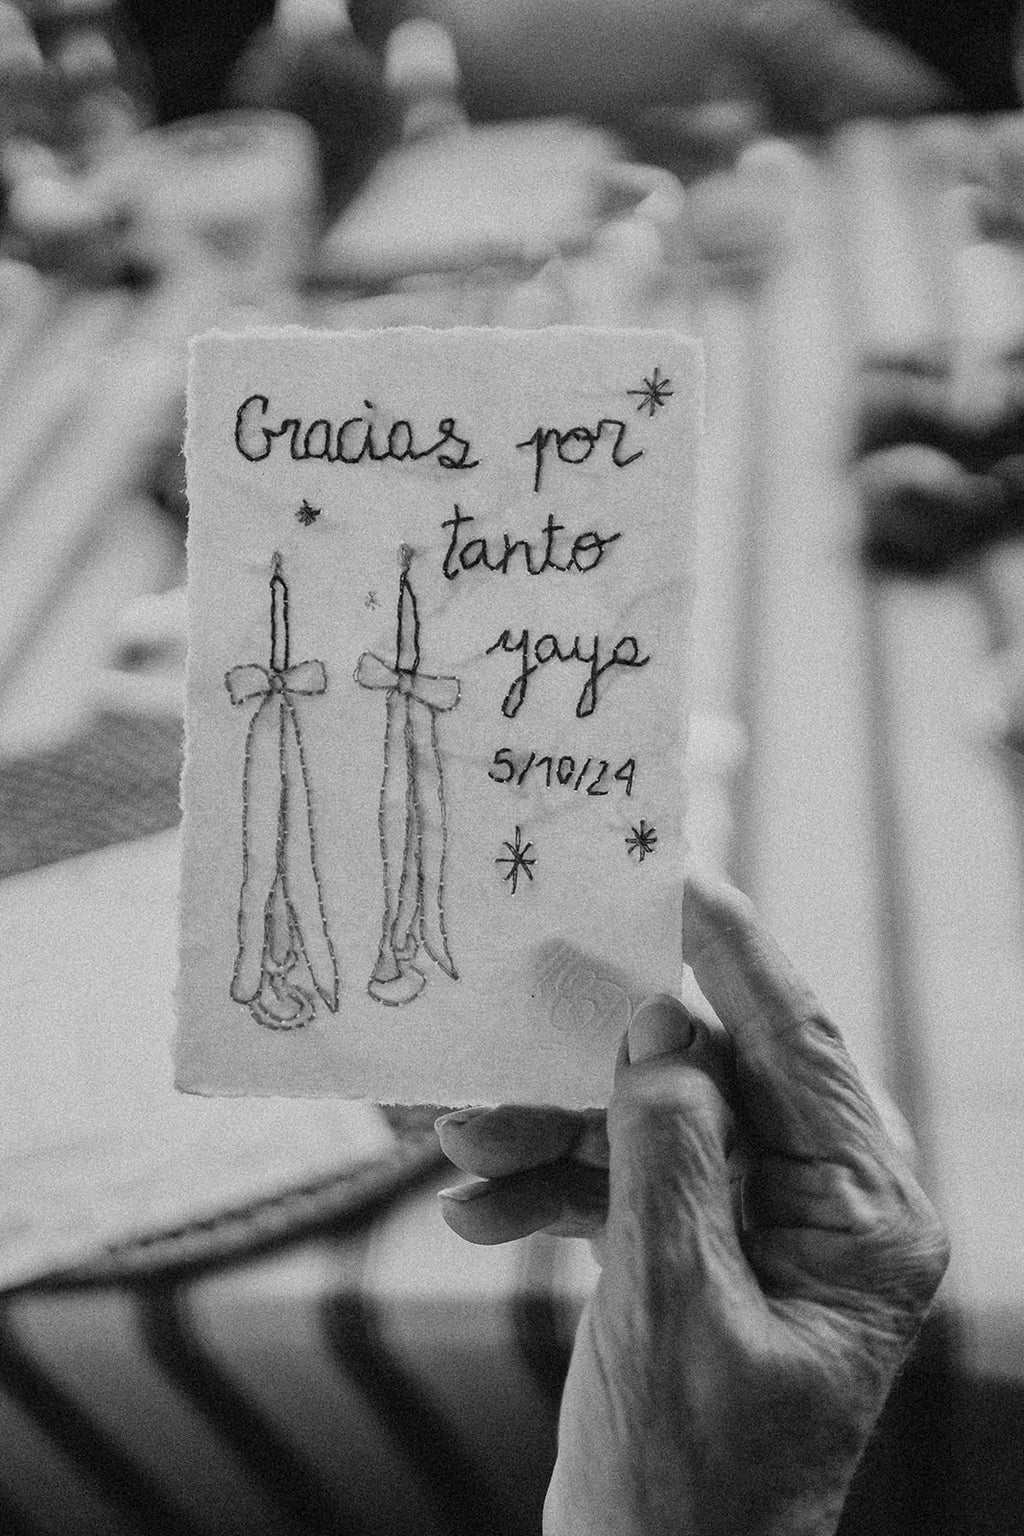 Gracias por
tanto
yaya
5/10/24